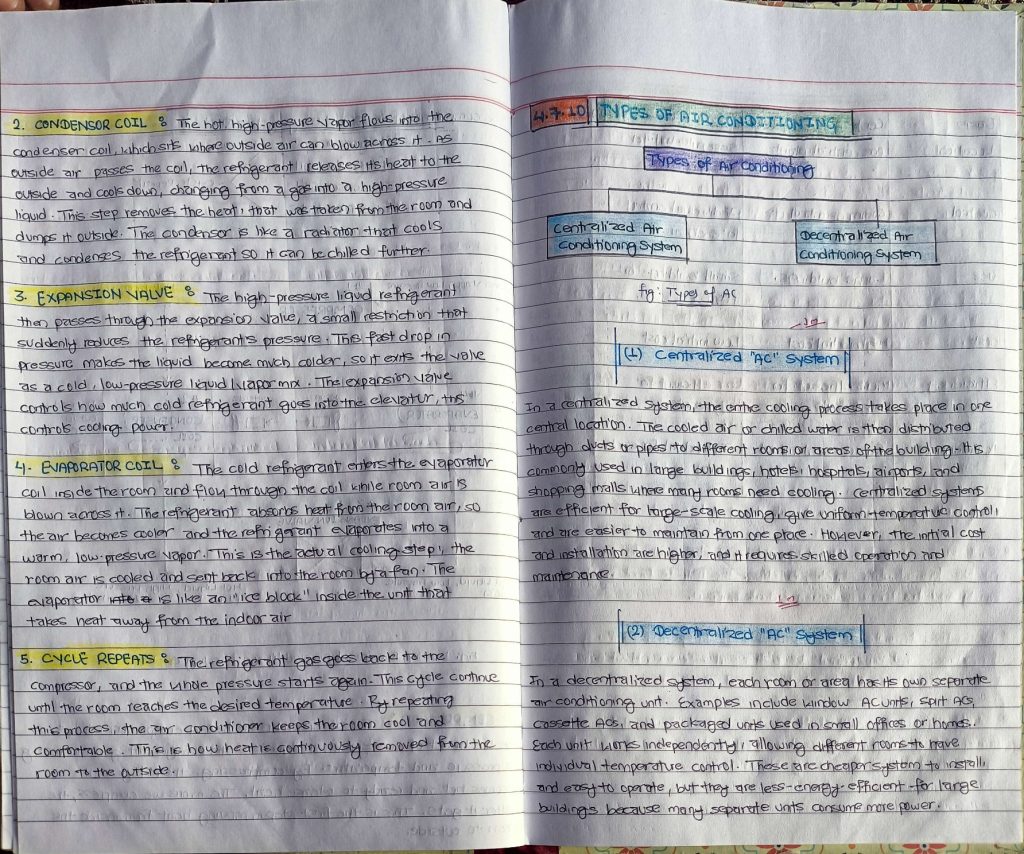 2. CONDENSOR COIL : The hot, high-pressure vapor flows into the
condenser coil, which sits where outside air can blow across it. As
outside air passes the coil, the refrigerant releases its heat to the
outside and cools down, changing from a gas into a high-pressure
liquid. This step removes the heat, that was taken from the room and
dumps it outside. The condensor is like a radiator that cools
and condenses the refrigerant so it can be chilled further.
3. EXPANSION VALVE : The high-pressure liquid refrigerant
then passes through the expansion value, a small restriction that
suddenly reduces the refrigerant's pressure. This fast drop in
pressure makes the liquid become much colder, so it exits the valve
as a cold, low-pressure liquid/vapor mix. The expansion valve
controls how much cold refrigerant goes into the elevatur, this
controls cooling power.
4. EVAPORATOR COIL : The cold refrigerant enters the evaporator
coil inside the room and flow through the coil while room air is
blown across it. The refrigerant absorbs heat from the room air, so
the air becomes cooler and the refrigerant evaporates into a
warm, low-pressure vapor. This is the actual cooling step, the
room air is cooled and sent back into the room by a fan. The
evaporator is like an "ice block" inside the unit that
takes heat away from the indoor air
5. CYCLE REPEATS : The refrigerant gas goes back to the
compressor, and the whole pressure starts again. This cycle continue
until the room reaches the desired temperature. By repeating
this process, the air conditioner keeps the room cool and
comfortable. This is how heat is continuously removed from the
room to the outside.
4.7.10 TYPES OF AIR CONDITIONING
Types of Air Conditioning
Centralized Air
Conditioning System
Decentralized Air
Conditioning System
fig: Types of AC
(1) Centralized "AC" System
In a centralized system, the entire cooling process takes place in one
central location. The cooled air or chilled water is then distributed
through ducts or pipes to different rooms or areas of the building. It is
commonly used in large buildings, hotels, hospitals, airports, and
shopping malls where many rooms need cooling. Centralized systems
are efficient for large-scale cooling, give uniform temperature control,
and are easier to maintain from one place. However, the initial cost
and installation are higher, and it requires skilled operation and
maintenance.
(2) Decentralized "AC" System
In a decentralized system, each room or area has its own separate
air conditioning unit. Examples include window AC units, split ACs,
cassette ACs, and packaged units used in small offices or homes.
Each unit works independently, allowing different rooms to have
individual temperature control. These are cheaper system to install,
and easy to operate, but they are less-energy-efficient for large
buildings because many separate units consume more power.